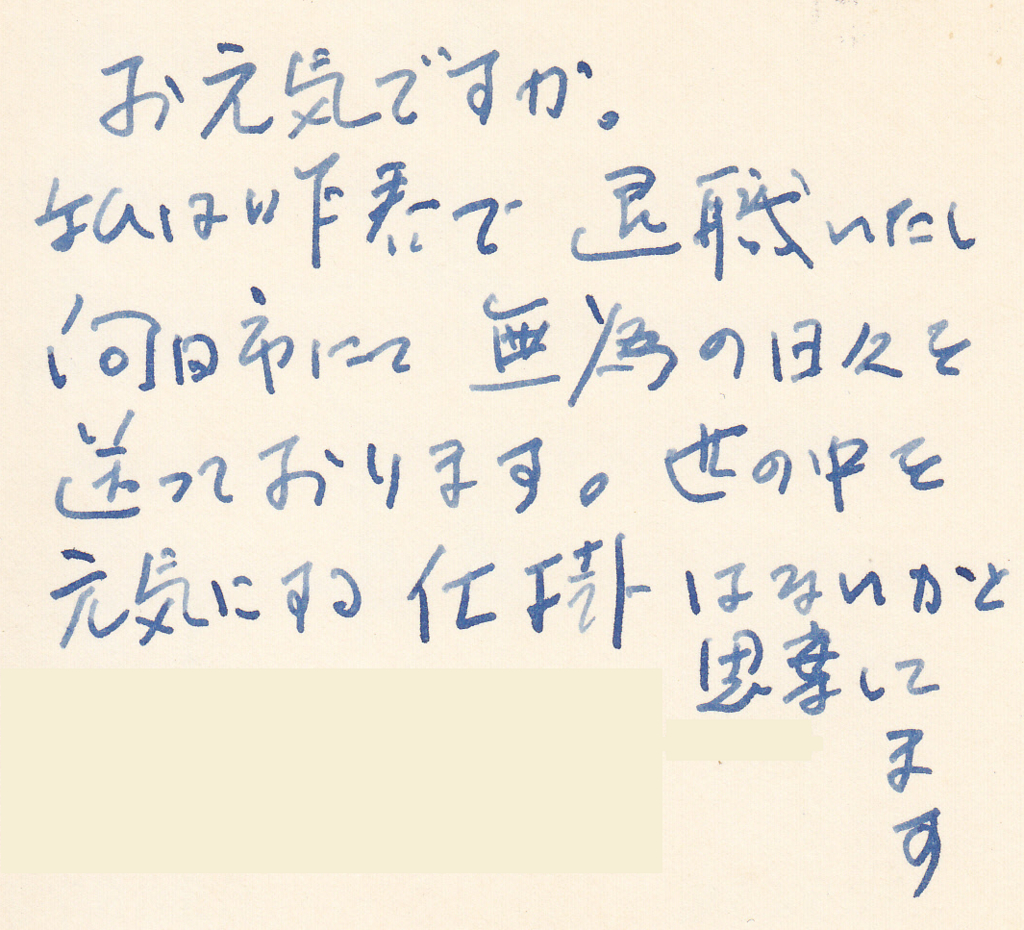 お元気ですか。
私は昨春で 退職いたし
向日市にて 無為の日々を
送っております。世の中を
元気にする 仕掛 はないかと
思案して
ま
す